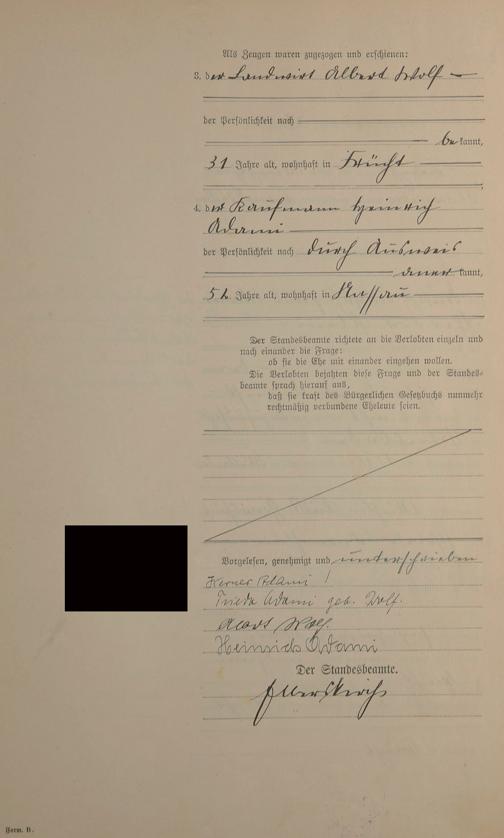 Als Zeugen waren zugezogen und erschienen:
3. der Landwirt Albert Wolf
der Persönlichkeit nach
bekannt,
31 Jahre alt, wohnhaft in Frücht
4. der Kaufmann Heinrich
Adami
der Persönlichkeit nach durch Ausweis
anerkannt,
52 Jahre alt, wohnhaft in Nassau
Der Standesbeamte richtete an die Verlobten einzeln und
nach einander die Frage:
ob sie die Ehe mit einander eingehen wollen.
Die Verlobten bejahten diese Frage und der Standes-
beamte sprach hierauf aus,
daß sie kraft des Bürgerlichen Gesetzbuchs nunmehr
rechtmäßig verbundene Eheleute seien.
Vorgelesen, genehmigt und unterschrieben
Adami
Frieda Adami geb. Wolf.
Wolf.
Heinrich Adami
Der Standesbeamte.
Form. B.